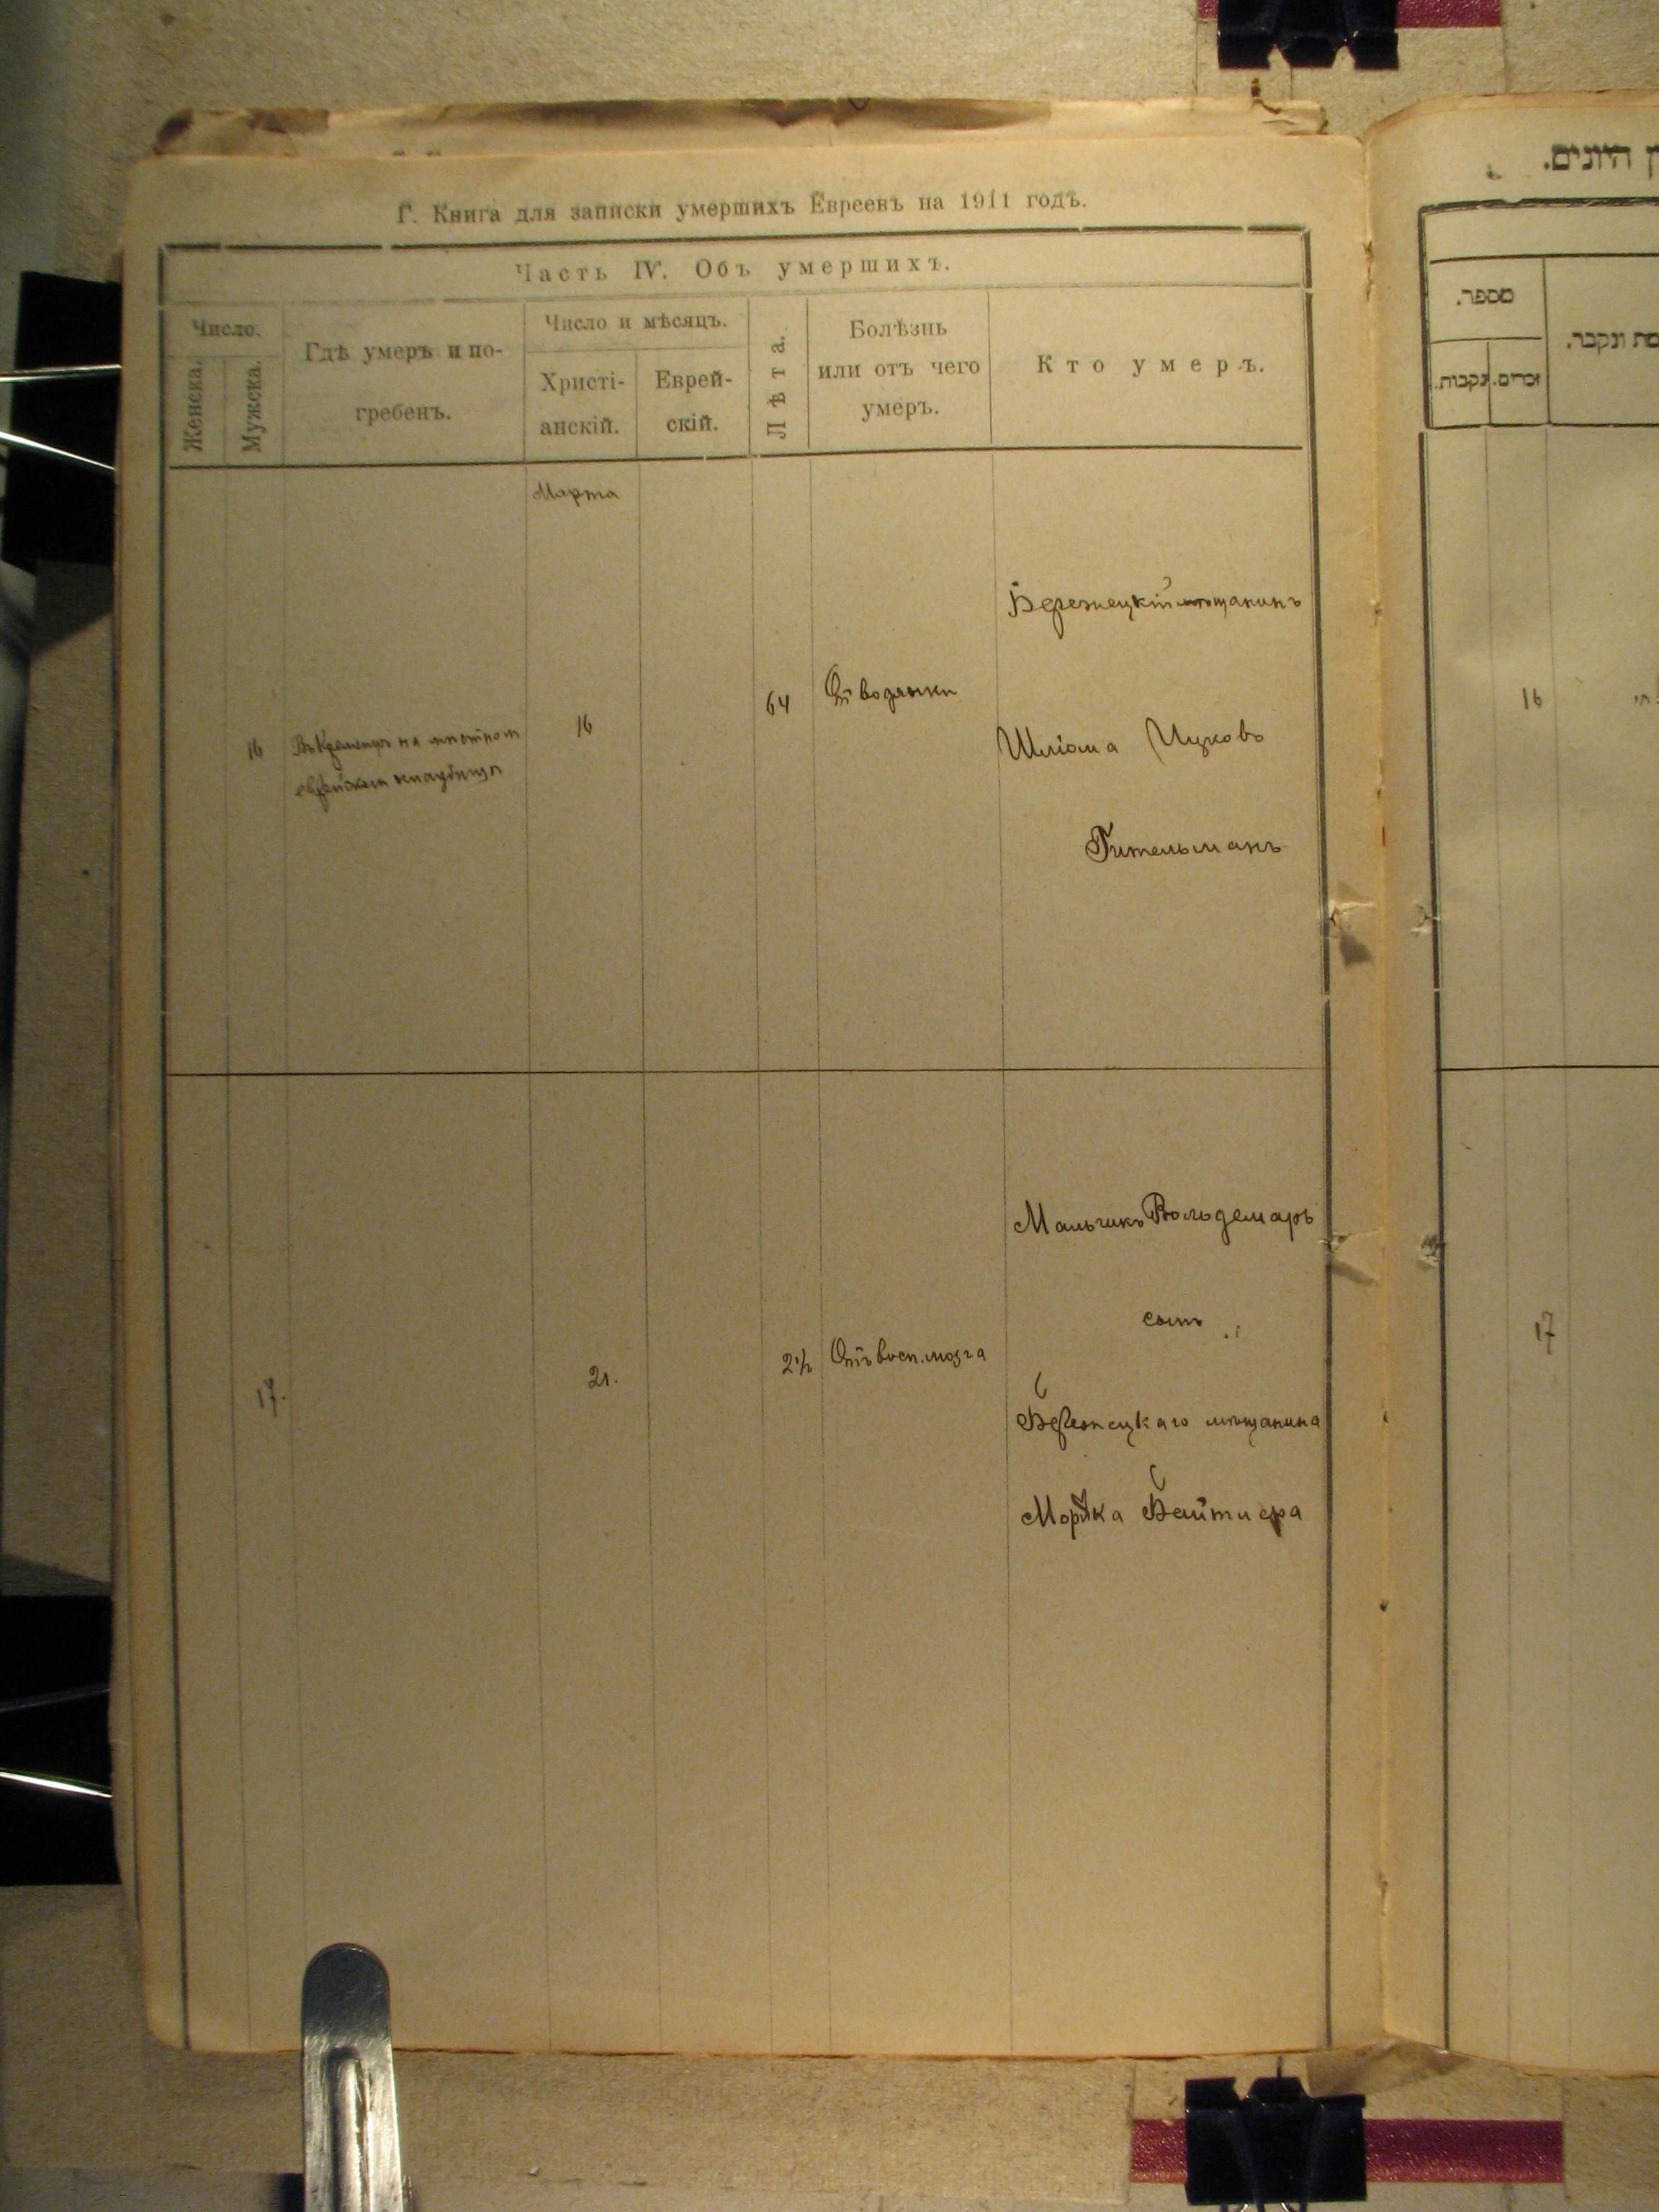 Г. Книга для записки умершихъ Евреевъ на 1911 годъ.
Часть IV. Объ умершихъ.
Число.
Женска.
Мужска.
Гдѣ умеръ и по-
гребенъ.
Число и мѣсяцъ.
Христі-
анскій.
Еврей-
скій.
Лѣта.
Болѣзнь
или отъ чего
умеръ.
Кто умеръ.
Марта
16
Въ Кременцѣ на мѣстном
еврейском кладбищѣ
16
64
От водянки
Бережецкій мѣщанинъ
Шлiома Ицковъ
Гительманъ
17.
21.
2½
Отъ восп. мозга
Мальчикъ Вольдемаръ
сынъ
Бережецкаго мѣщанина
Мошка
ן היונים.
מספר.
זכרים.
נקבות.
מת ונקבר.
16
17